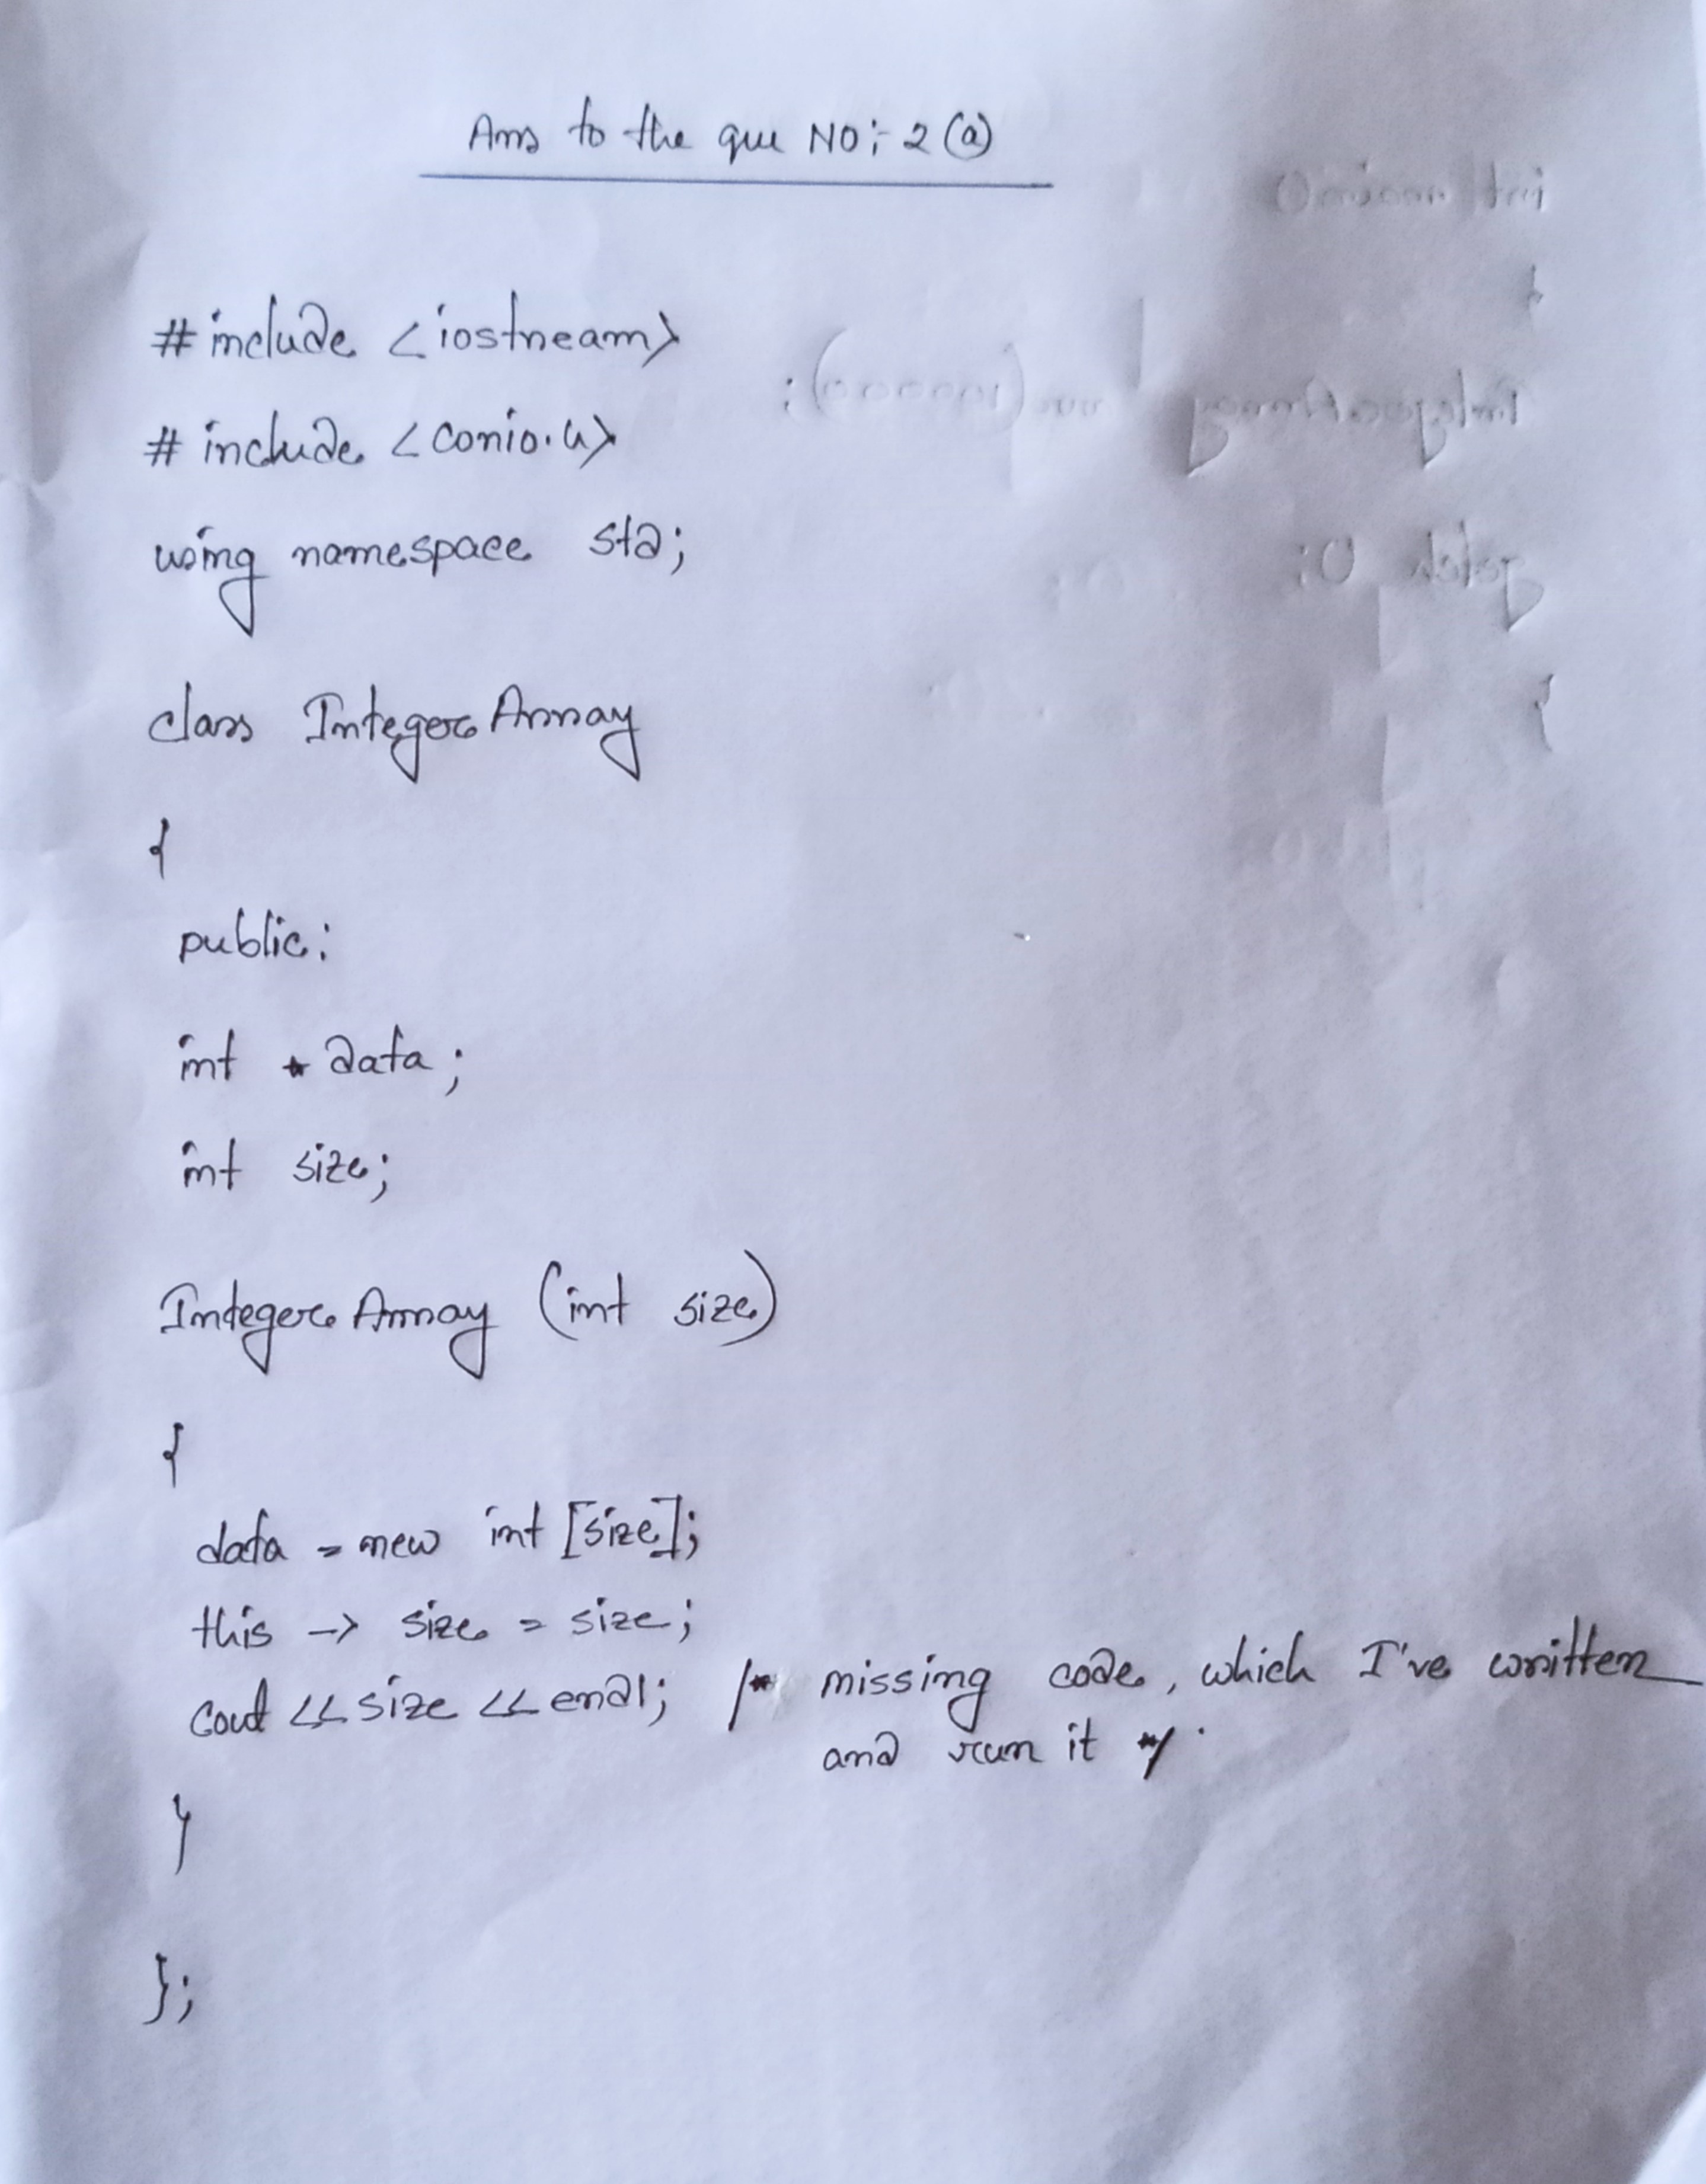 Ans to the que NO:- 2(a)
#include <iostream>
#include <conio.h>
using namespace std;
class IntegerArray
{
public:
int * data;
int size;
IntegerArray (int size)
{
data = new int [size];
this -> size = size;
cout << size << endl; /* missing code, which I've written
and run it */.
}
};